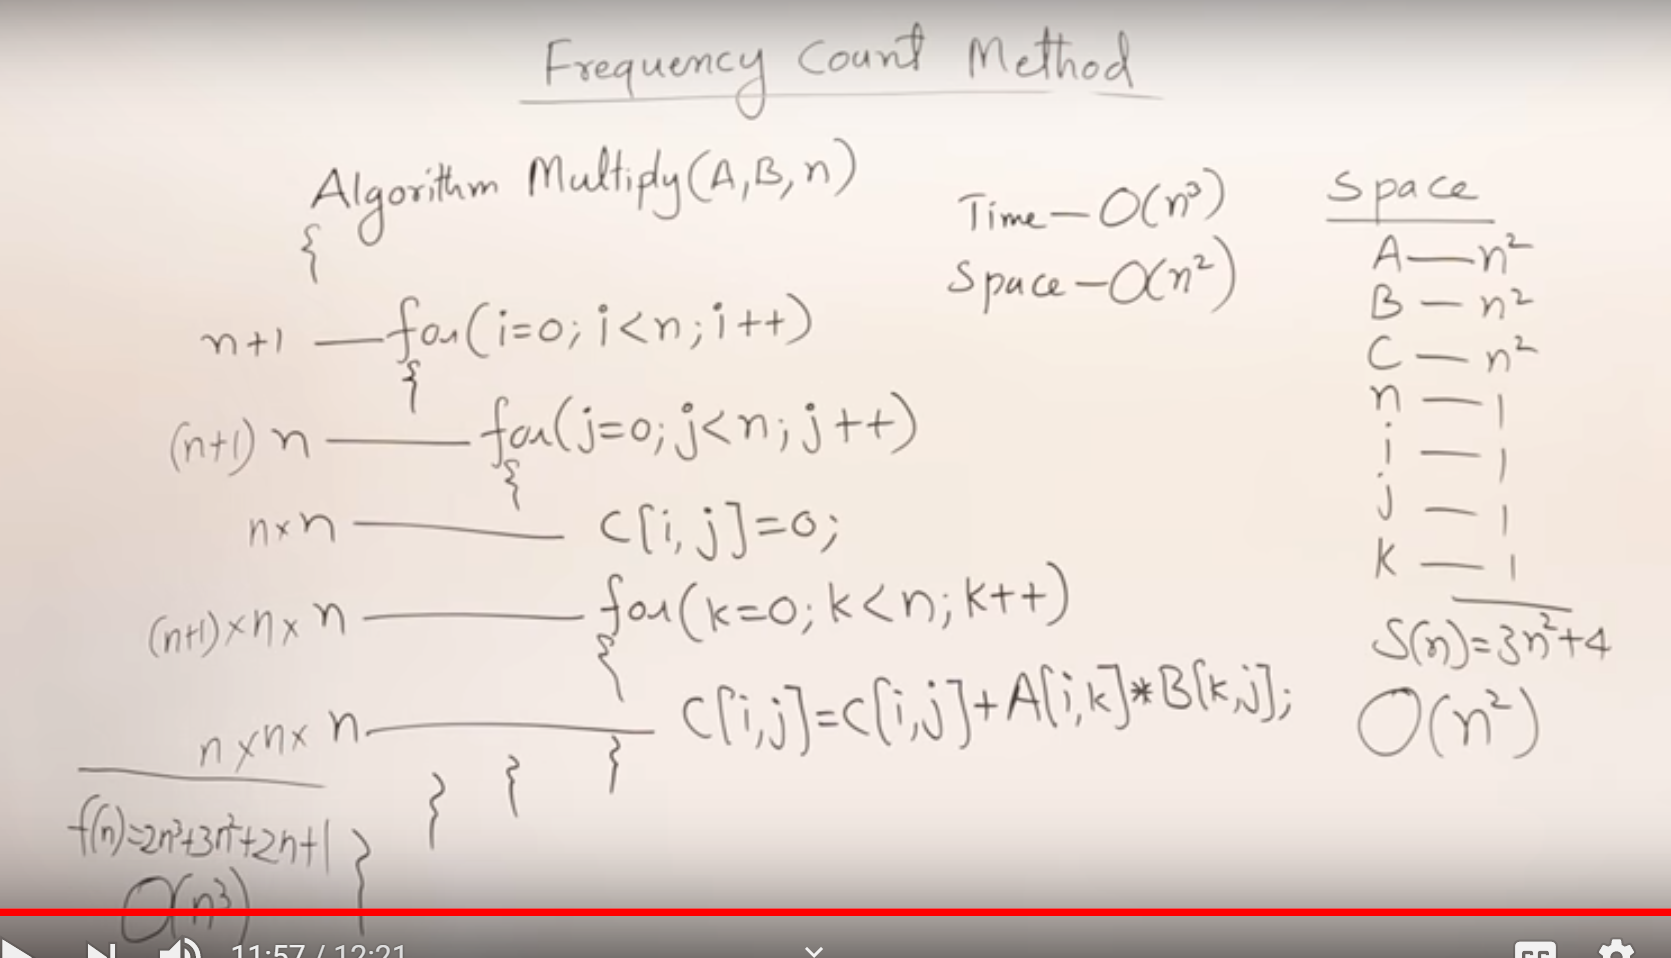 Frequency Count Method
Algorithm Multiply(A,B,n)
{
n+1 — for(i=0; i<n; i++)
{
(n+1) n — for(j=0; j<n; j++)
{
n×n — C[i,j]=0;
(n+1)×n×n — for(k=0; k<n; k++)
{
n×n×n — C[i,j]=C[i,j]+A[i,k]*B[k,j];
} } }
f(n)=2n³+3n²+2n+1
}
O(n³)
Time — O(n³)
Space — O(n²)
Space
A — n²
B — n²
C — n²
n — 1
i — 1
j — 1
k — 1
S(n)=3n²+4
O(n²)
11:57 / 12:21
CC